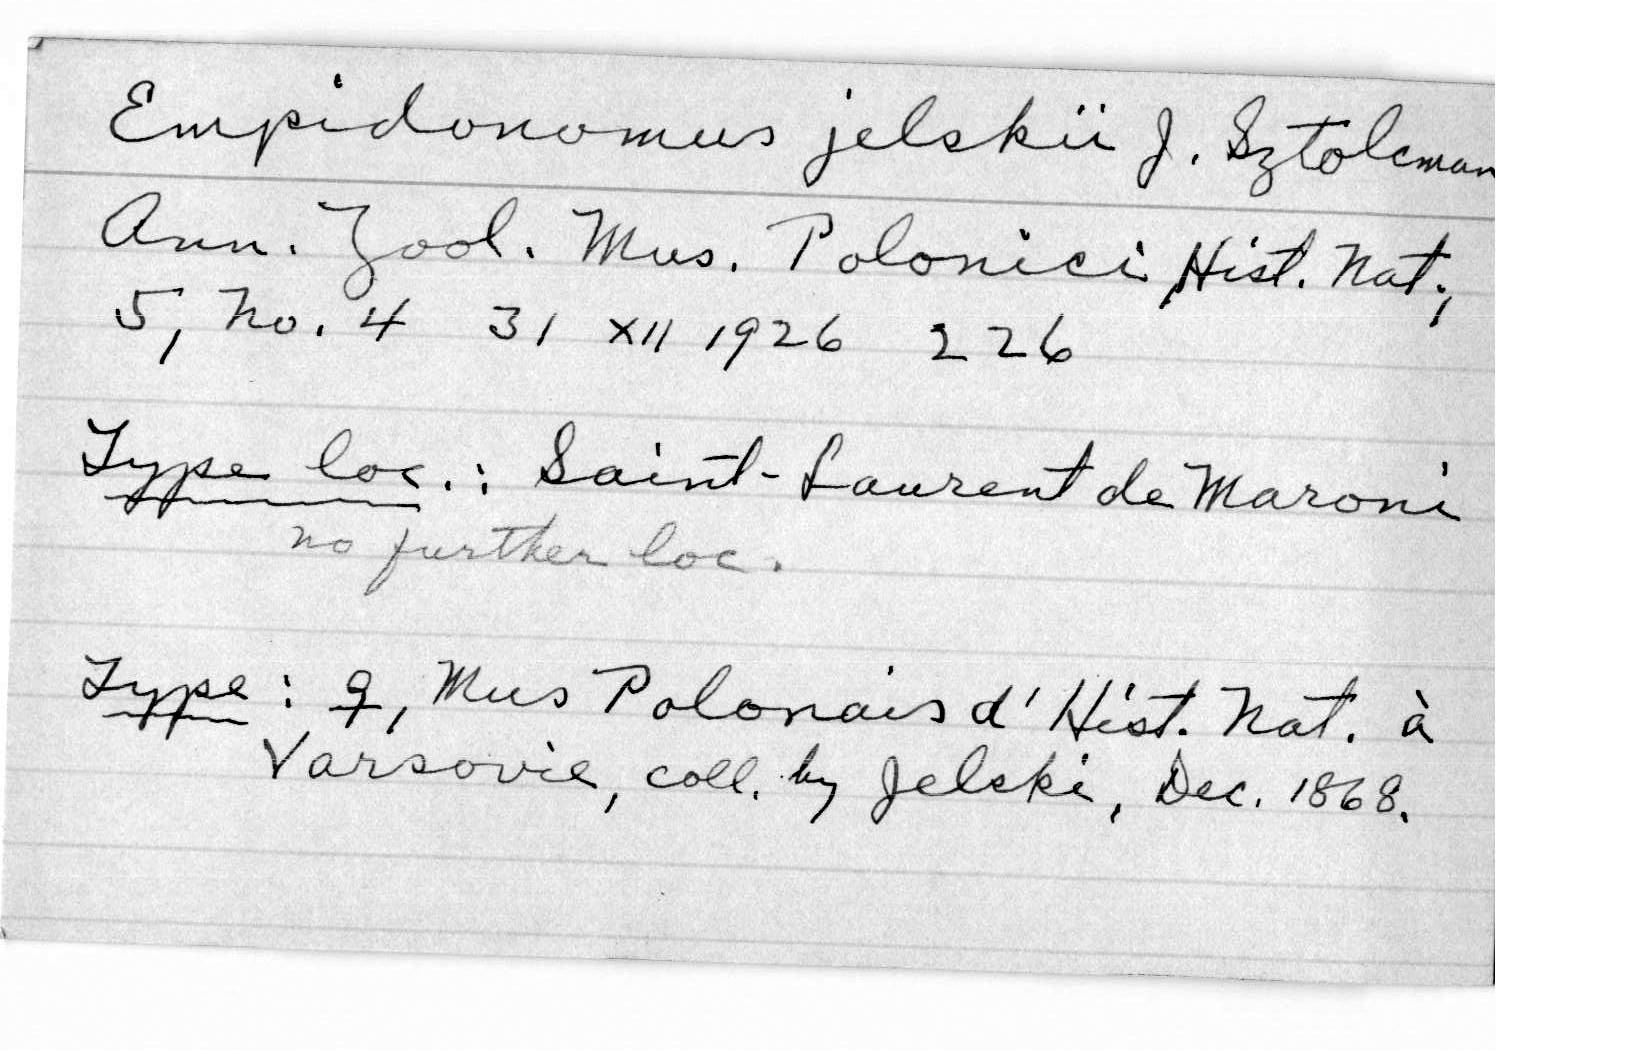 Empidonomus jelskii J. Sztolcman
Ann. Zool. Mus. Polonici Hist. Nat.,
5, No. 4 31 XII 1926 226
Type loc.: Saint-Laurent de Maroni
no further loc.
Type: ♀, Mus Polonais d'Hist. Nat. à
Varsovie, coll. by Jelski, Dec. 1868.